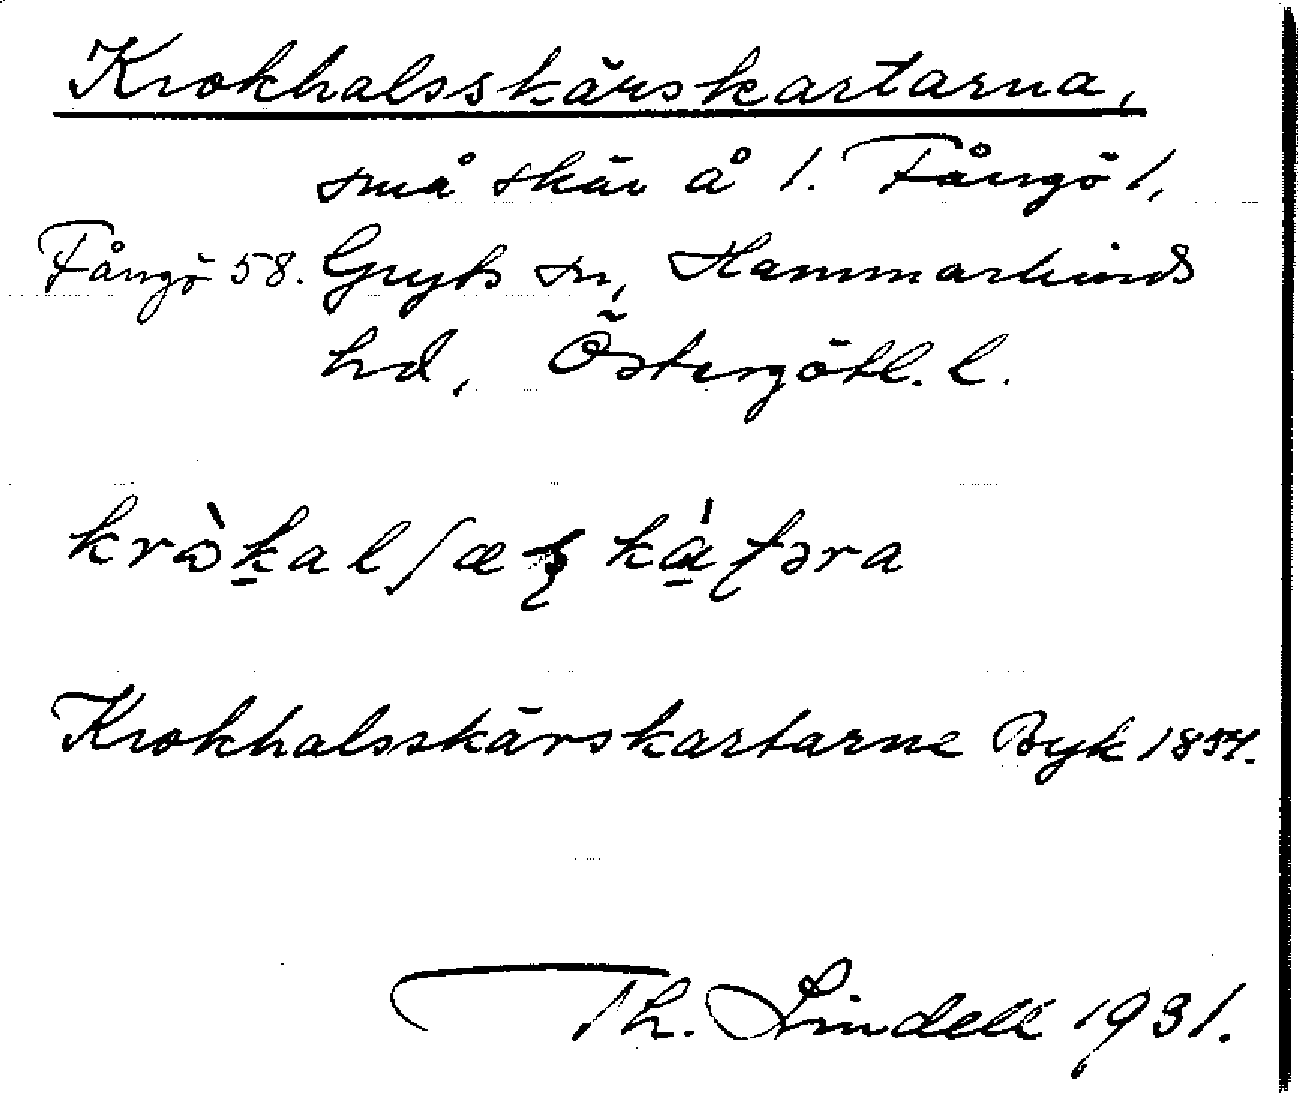 Krokhalsskärskartarna,
små skär å 1. Fångö 1,
Fångö 58. Gryts sn, Hammarkinds
hd, Östergötl. l.
Krokhalsskärskartarne Byk 1854.
Th. Lindell 1931.